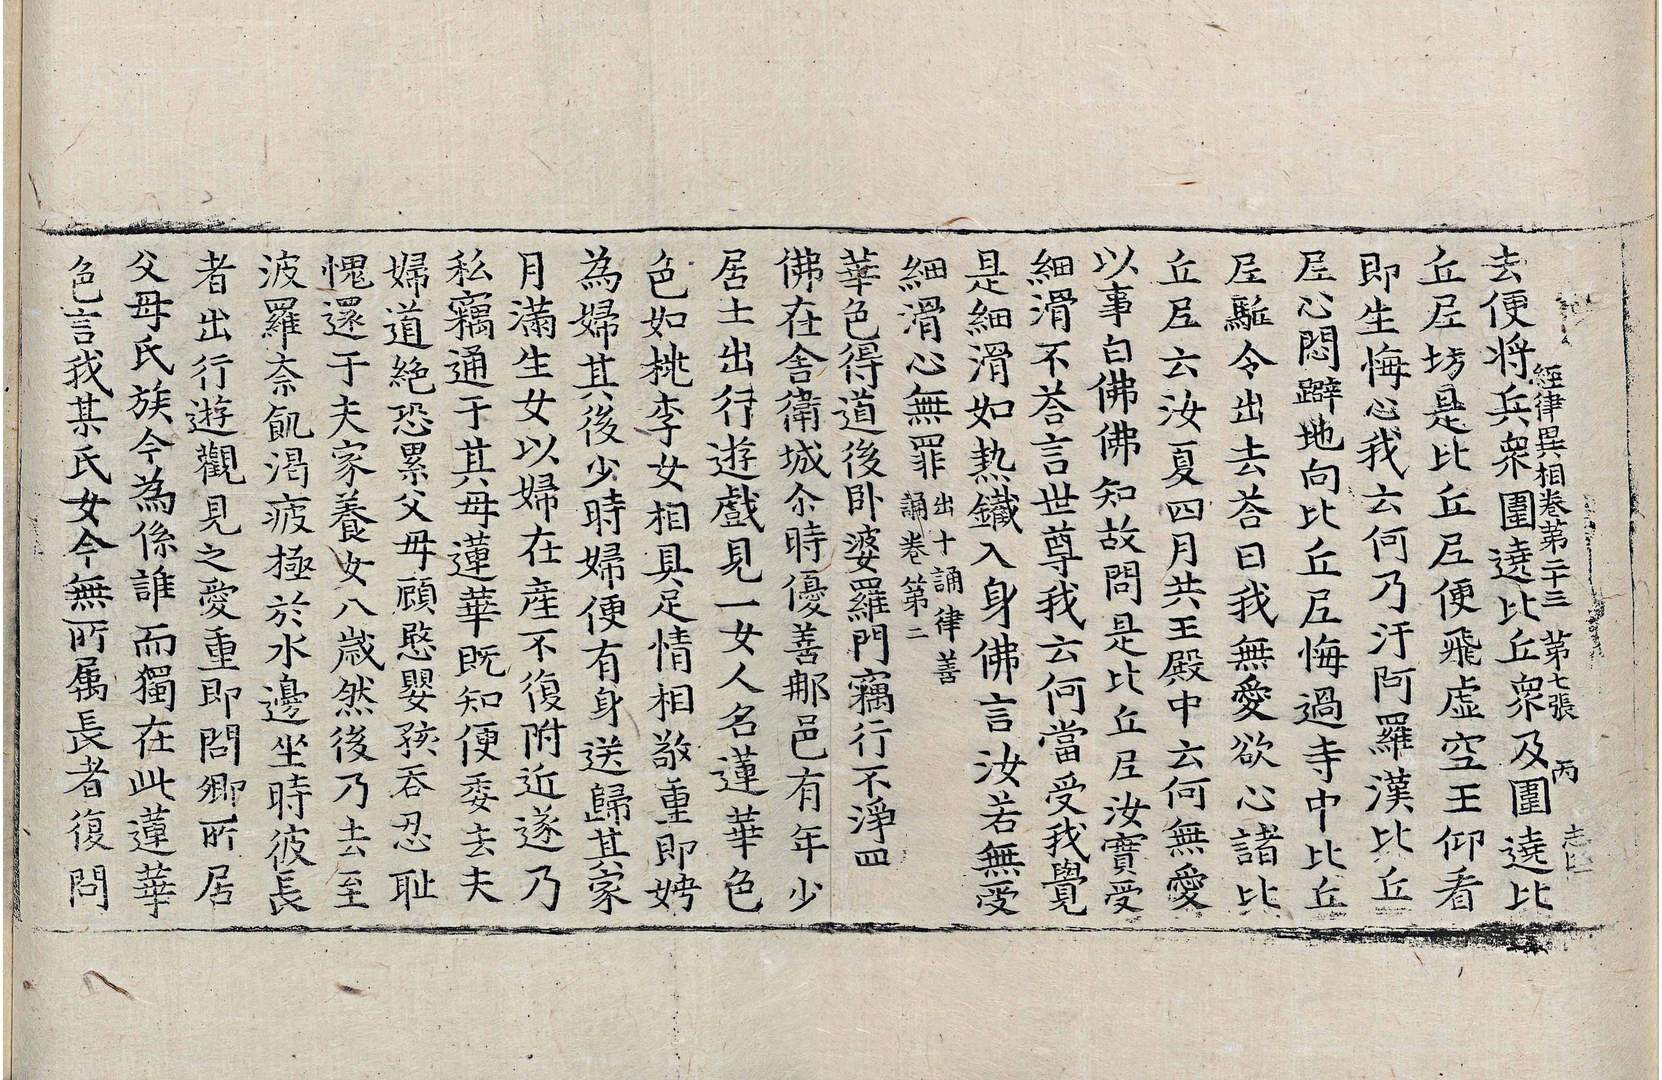 經律異相卷第二十三 第七張 丙
去便將兵衆圍遶比丘衆及圍遶比
丘𡰱坊是比丘𡰱便飛虛空王仰看
即生悔心我云何乃汙阿羅漢比丘
𡰱心悶躃地向比丘𡰱悔過寺中比丘
𡰱駈令出去荅曰我無愛欲心諸比
丘𡰱云汝夏四月共王殿中云何無愛
以事白佛佛知故問是比丘𡰱汝實受
細滑不荅言世尊我云何當受我覺
是細滑如熱鐵入身佛言汝若無受
細滑心無罪 出十誦律善
誦卷第二
華色得道後卧婆羅門竊行不淨四
佛在舍衛城尒時優善那邑有年少
居士出行遊戲見一女人名蓮華色
色如桃李女相具足情相敬重即娉
為婦其後少時婦便有身送歸其家
月滿生女以婦在産不復附近遂乃
私竊通于其母蓮華既知便委去夫
婦道絕恐累父母顧愍嬰孩吞忍恥
愧還于夫家養女八歲然後乃去至
波羅柰飢渴疲極於水邊坐時彼長
者出行遊觀見之愛重即問卿所居
父母氏族今為係誰而獨在此蓮華
色言我某氏女今無所属長者復問